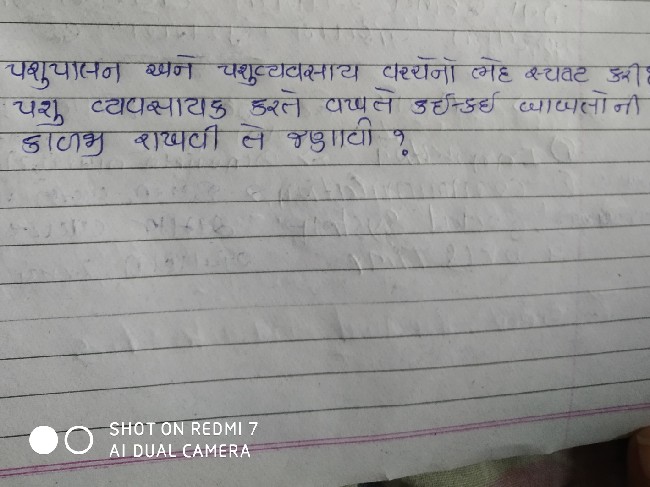 પશુપાલન અને પશુવ્યવસાય વચ્ચેનો ભેદ સ્પષ્ટ કરી
પશુ વ્યવસાયક કરતે વખતે કઈ-કઈ બાબતોની
કાળજી રાખવી તે જણાવી ?
SHOT ON REDMI 7
AI DUAL CAMERA